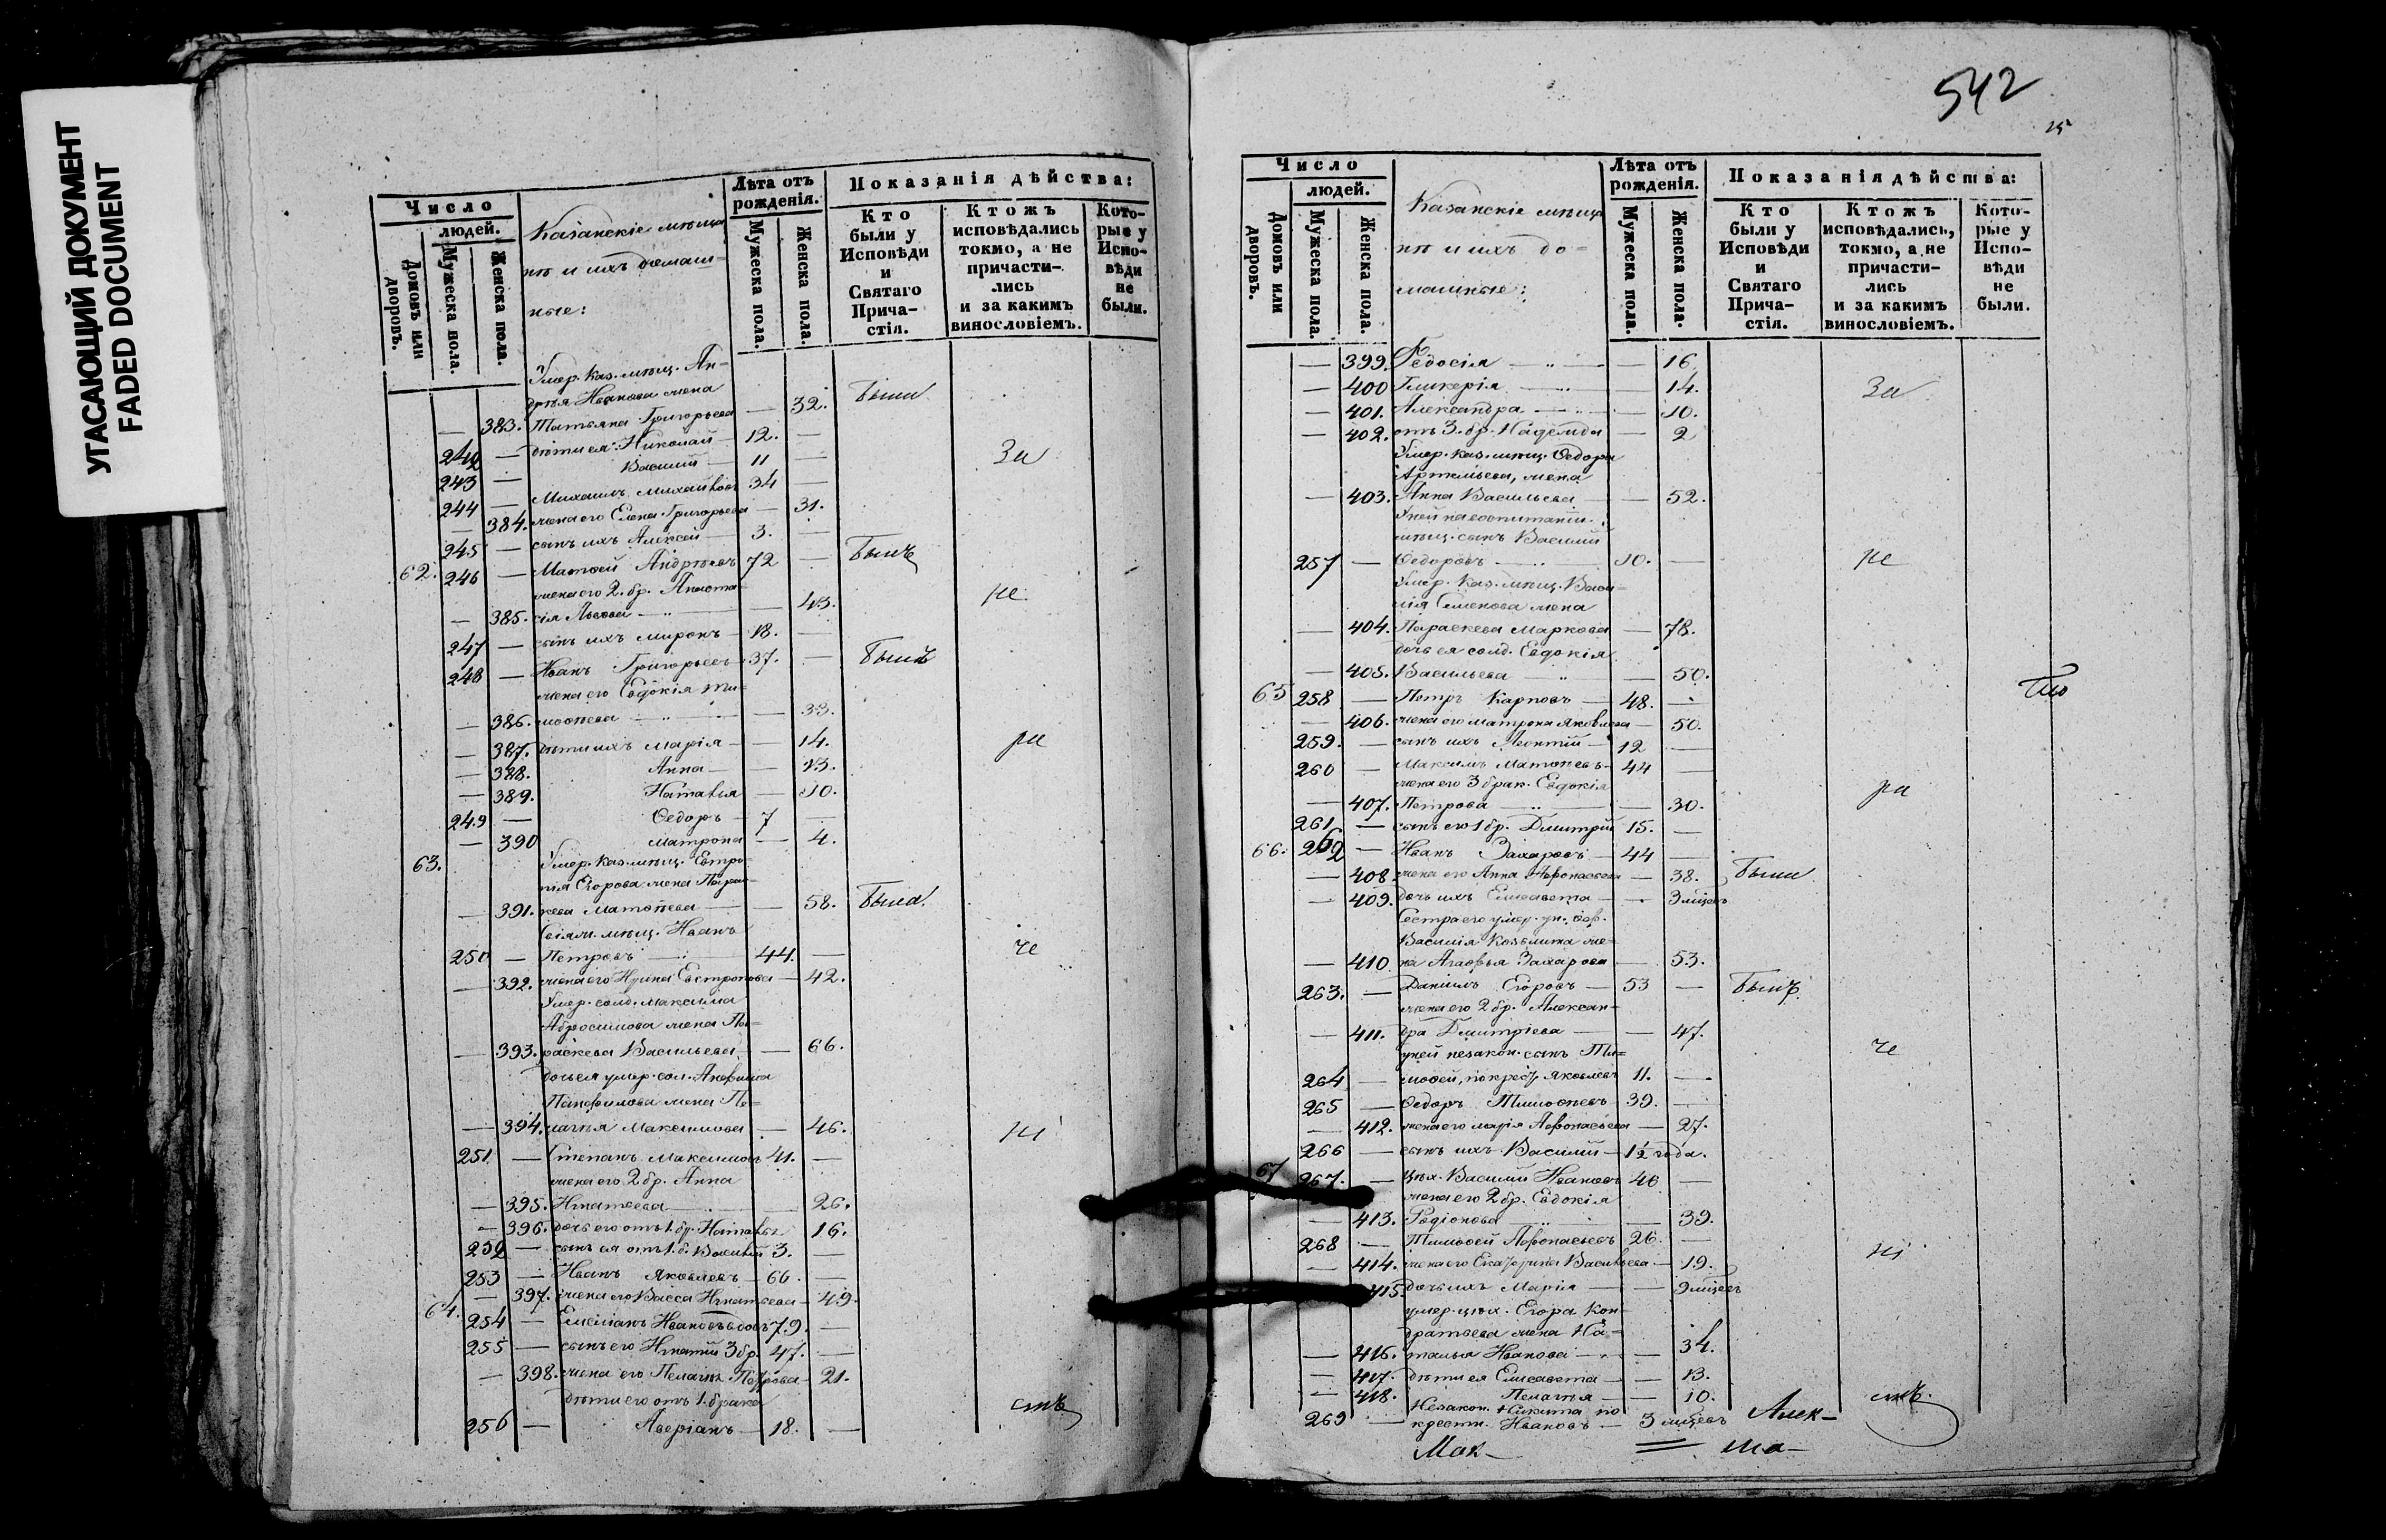 УГАСАЮЩИЙ ДОКУМЕНТ
FADED DOCUMENT
Число
людей.
Домовъ или дворовъ.
Мужеска пола.
Женска пола.
Казанскіе мѣща
не и ихъ домаш=
ные:
Лѣта отъ рожденія.
Мужеска пола.
Женска пола.
Показанія дѣйства:
Кто были у Исповѣди и Святаго Прича-стія.
Ктожъ исповѣдались токмо, а не причасти-лись и за какимъ винословіемъ.
Кото-рые у Испо-вѣди не были.
Умер. каз. мѣщ. Ан=
дрея Иванова жена
— 383. Татьяна Григорьева — 32. Были
242 — дѣти ея: Николай — 12. —
243 — Василій — 11 — За
244 — Михаилъ Михайловъ 34 —
— 384. жена его Елена Григорьева — 31.
245 — сынъ ихъ Алексей — 3. —
62. 246 — Матвей Андреевъ 72 — Былъ
жена его 2. бр. Анаста=
— 385. сія Львова — — 43. не
247 — сынъ ихъ Миронъ — 18. —
248 — Иванъ Григорьевъ 37. — Былъ
жена его Евдокія Ти=
— 386. моѳеева — — 33.
— 387. дѣти ихъ Марія — — 14. ра
— 388. Анна — — 13.
— 389. Наталья — 10.
249 — Ѳедоръ — 7 —
— 390 Матрона — 4.
63. Умер. каз. мѣщ. Евтро=
пія Егорова жена Парас=
— 391. кева Матвѣева — — 58. Была.
мѣщ. Иванъ
250 — Петровъ — 44. — че
— 392. жена его Ирина Евстропова — 42.
Умер. солд. Максима
Абросимова жена Па=
— 393. раскева Васильева — — 66.
дочь ея умер. сол.
Панфилова жена Пе=
— 394. лагѣя Максимова — 46. ні
251 — Степанъ Максимовъ 41. —
жена его 2 бр. Анна
— 395. Игнатьева — 26.
— 396. дочь его отъ 1. бр. Наталья 16.
252 — сынъ ея отъ 1. б. Василій 3. —
253 — Иванъ Яковлевъ — 66. —
— 397. жена его Васса Игнатьева — 49.
64. 254 — Емеліанъ Ивановъ вдовъ 79. —
255 — сынъ его Игнатій 3 бр. 47. —
— 398. жена его Пелагѣя Петрова — 21.
дѣти его отъ 1. брака
256 — Аверіанъ — 18. — емъ
542
25
Число
людей.
Домовъ или дворовъ.
Мужеска пола.
Женска пола.
Казанскіе мѣща
не и ихъ до=
машные:
Лѣта отъ рожденія.
Мужеска пола.
Женска пола.
Показанія дѣйства:
Кто были у Исповѣди и Святаго Прича-стія.
Ктожъ исповѣдались, токмо, а не причасти-лись и за какимъ винословіемъ.
Кото-рые у Испо-вѣди не были.
— 399. Ѳедосія — — 16.
— 400 Гликерія — — 14. За
— 401. Александра — — 10.
— 402. отъ 3. бр. Надежда — 2
Умер. каз. мѣщ. Ѳедора
Артемьева, жена
— 403. Анна Васильева — — 52.
У ней на воспитаніи
мѣщ. сынъ Василій
257 — Ѳедоровъ — 10. — не
Умер. каз. мѣщ. Васи=
лія Семенова жена
— 404. Параскева Маркова — 78.
дочь ея солд. Евдокія
— 405. Васильева — — 50.
65 258 — Петръ Карповъ — 48. —
— 406. жена его Матрона Яковлева — 50.
259. — сынъ ихъ Леонтій — 12 —
260 — Максимъ Матвѣевъ — 44 —
жена его 3 брак. Евдокія
— 407. Петрова — — 30. ра
261 — сынъ его 1 бр. Димитрій 15. —
66. 262 — Иванъ Захаровъ — 44 —
— 408. жена его Анна Афонасьева — 38. Были
— 409. дочь ихъ Елисавета — — 3 мѣсец
Сестра его умер.
Василія жe=
— 410 на Агафья Захарова — 53.
263. — Даніилъ Егоровъ — 53 — Былъ
жена его 2 бр. Алексан=
— 411. дра Дмитріева — — 47.
у ней незакон. сынъ Ти= че
264 — моѳей, по крест. Яковлевъ 11. —
265 — Ѳедоръ Тимоѳеевъ 39. —
— 412. жена его Марія Афонасьева — 27.
266 — сынъ ихъ Василій — 1½ года.
67 267. — Цех. Василій Ивановъ 40 —
жена его 2 бр. Евдокія
— 413. Родіонова — — 39.
268 — Тимоѳей Афонасьевъ 26. —
— 414. жена его Екатерина Васильева — 19. ні
415. дочь ихъ Марія — — 9 мѣсец
умер. цех. Егора Кон=
дратьева жена На=
— 416. талья Иванова — — 34.
— 417. дѣти ея Елисавета — — 13.
— 418. Пелагѣя — — 10. емъ.
Незакон. Никита по
269 — крестн. Ивановъ — 3 мѣсец Алек—
Мак— ша—